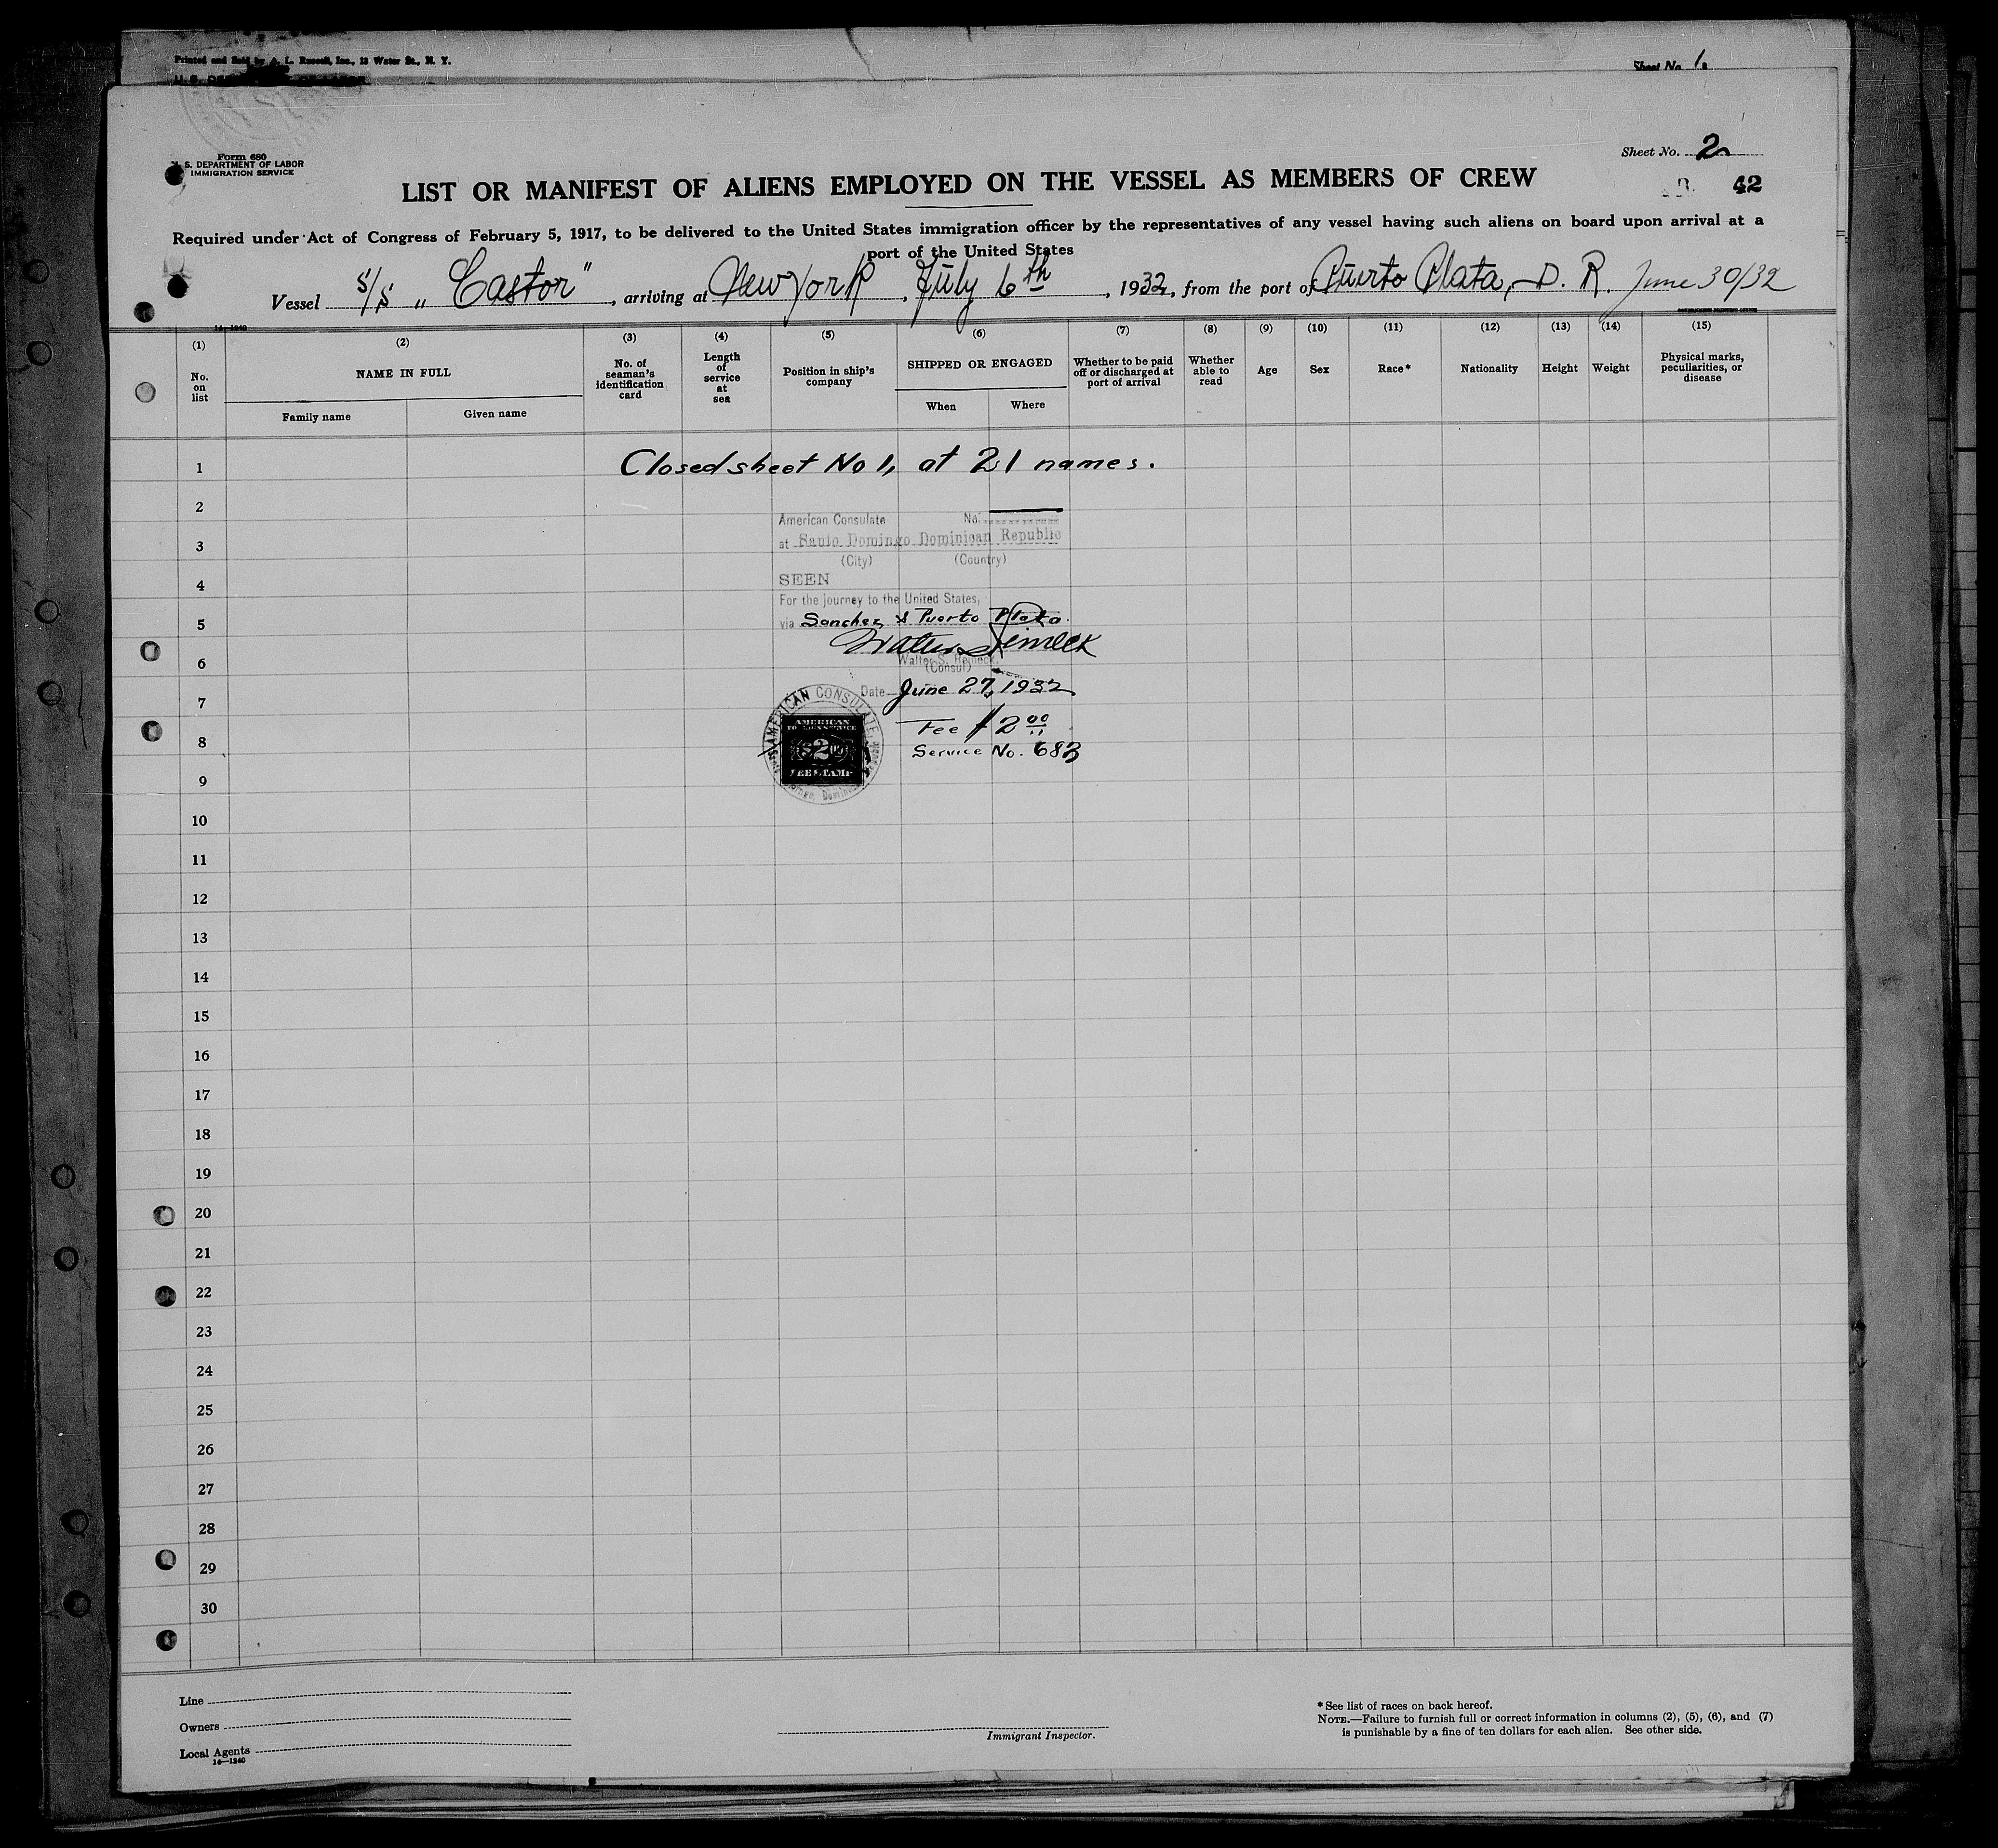 Printed and Sold by A. L. Russell, Inc., 13 Water St., N. Y.
Sheet No. 1.
Form 680
U. S. DEPARTMENT OF LABOR
IMMIGRATION SERVICE
Sheet No. 2
42
LIST OR MANIFEST OF ALIENS EMPLOYED ON THE VESSEL AS MEMBERS OF CREW
Required under Act of Congress of February 5, 1917, to be delivered to the United States immigration officer by the representatives of any vessel having such aliens on board upon arrival at a
port of the United States
Vessel S/S „ Castor", arriving at New York, July 6th, 1932, from the port of Puerto Plata, D. R. June 30/32
14—1240
(1) No. on list
(2) NAME IN FULL
Family name
Given name
(3) No. of seaman's identification card
(4) Length of service at sea
(5) Position in ship's company
(6) SHIPPED OR ENGAGED
When
Where
(7) Whether to be paid off or discharged at port of arrival
(8) Whether able to read
(9) Age
(10) Sex
(11) Race*
(12) Nationality
(13) Height
(14) Weight
(15) Physical marks, peculiarities, or disease
1 Closed sheet No 1, at 21 names.
2
American Consulate No.
3
at Santo Domingo Dominican Republic
(City) (Country)
4
SEEN
For the journey to the United States,
5
via Sanchez & Puerto Plata.
6
Walter S. Reineck
(Consul)
7
Date June 27, 1932
AMERICAN CONSULATE
AMERICAN
8
Fee $2.00
Service No. 683
$2
FEE STAMP
9
10
11
12
13
14
15
16
17
18
19
20
21
22
23
24
25
26
27
28
29
30
Line
Owners
Local Agents
14—1240
Immigrant Inspector.
*See list of races on back hereof.
NOTE.—Failure to furnish full or correct information in columns (2), (5), (6), and (7)
is punishable by a fine of ten dollars for each alien. See other side.